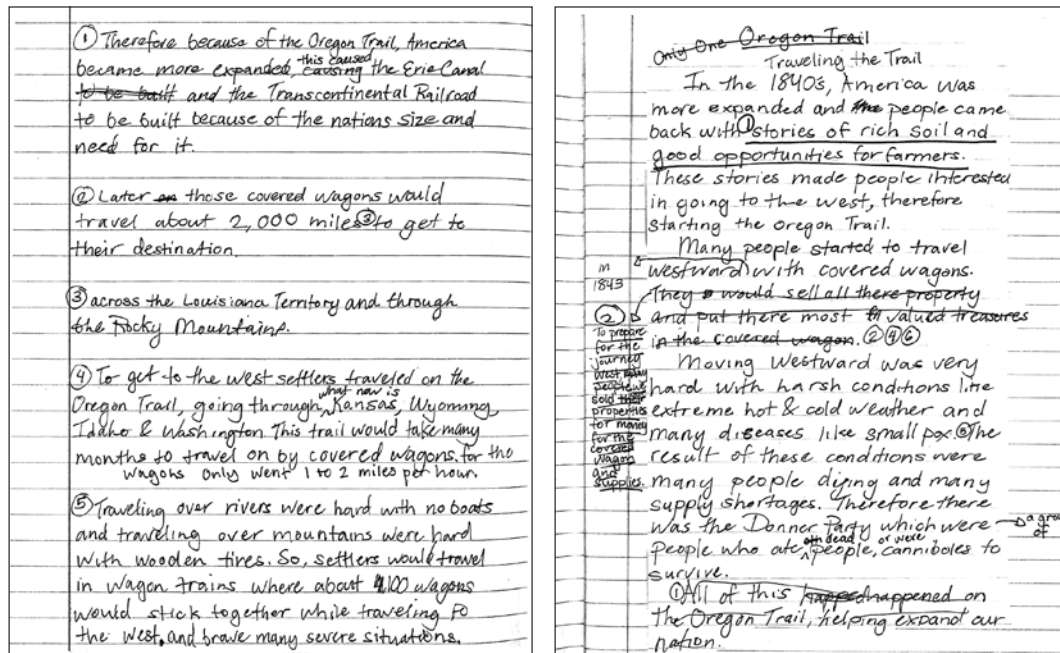 ① Therefore because of the Oregon Trail, America
became more expanded, this caused causing the Erie Canal
to be built and the Transcontinental Railroad
to be built because of the nations size and
need for it.
② Later on those covered wagons would
travel about 2,000 miles ③ to get to
their destination.
③ across the Louisiana Territory and through
the Rocky Mountains.
④ To get to the west settlers traveled on the
Oregon Trail, going through, what now is Kansas, Wyoming,
Idaho & Washington. This trail would take many
months to travel on by covered wagons. for the
wagons only went 1 to 2 miles per hour.
⑤ Traveling over rivers were hard with no boats
and traveling over mountains were hard
with wooden tires. So, settlers would travel
in wagon trains where about 100 wagons
would stick together while traveling to
the west. and brave many severe situations.
Only One Oregon Trail
Traveling the Trail
In the 1840s, America was
more expanded and the people came
back with ① stories of rich soil and
good opportunities for farmers.
These stories made people interested
in going to the west, therefore
starting the oregon Trail.
Many people started to travel
westward with covered wagons.
in
1843
They would sell all there property
and put there most valued treasures
in the covered wagon. ② ④ ⑥
②
To prepare
for the
journey
west, many
people
sold their
properties
for money
for the
covered
wagon
and
supplies.
Moving Westward was very
hard with harsh conditions like
extreme hot & cold weather and
many diseases like small pox. The
result of these conditions were
many people dying and many
supply shortages. Therefore there
was the Donner Party which were a gro
of
people who ate dead people, or were canniboles to
survive.
① All of this happened on
The Oregon Trail, helping expand our
nation.